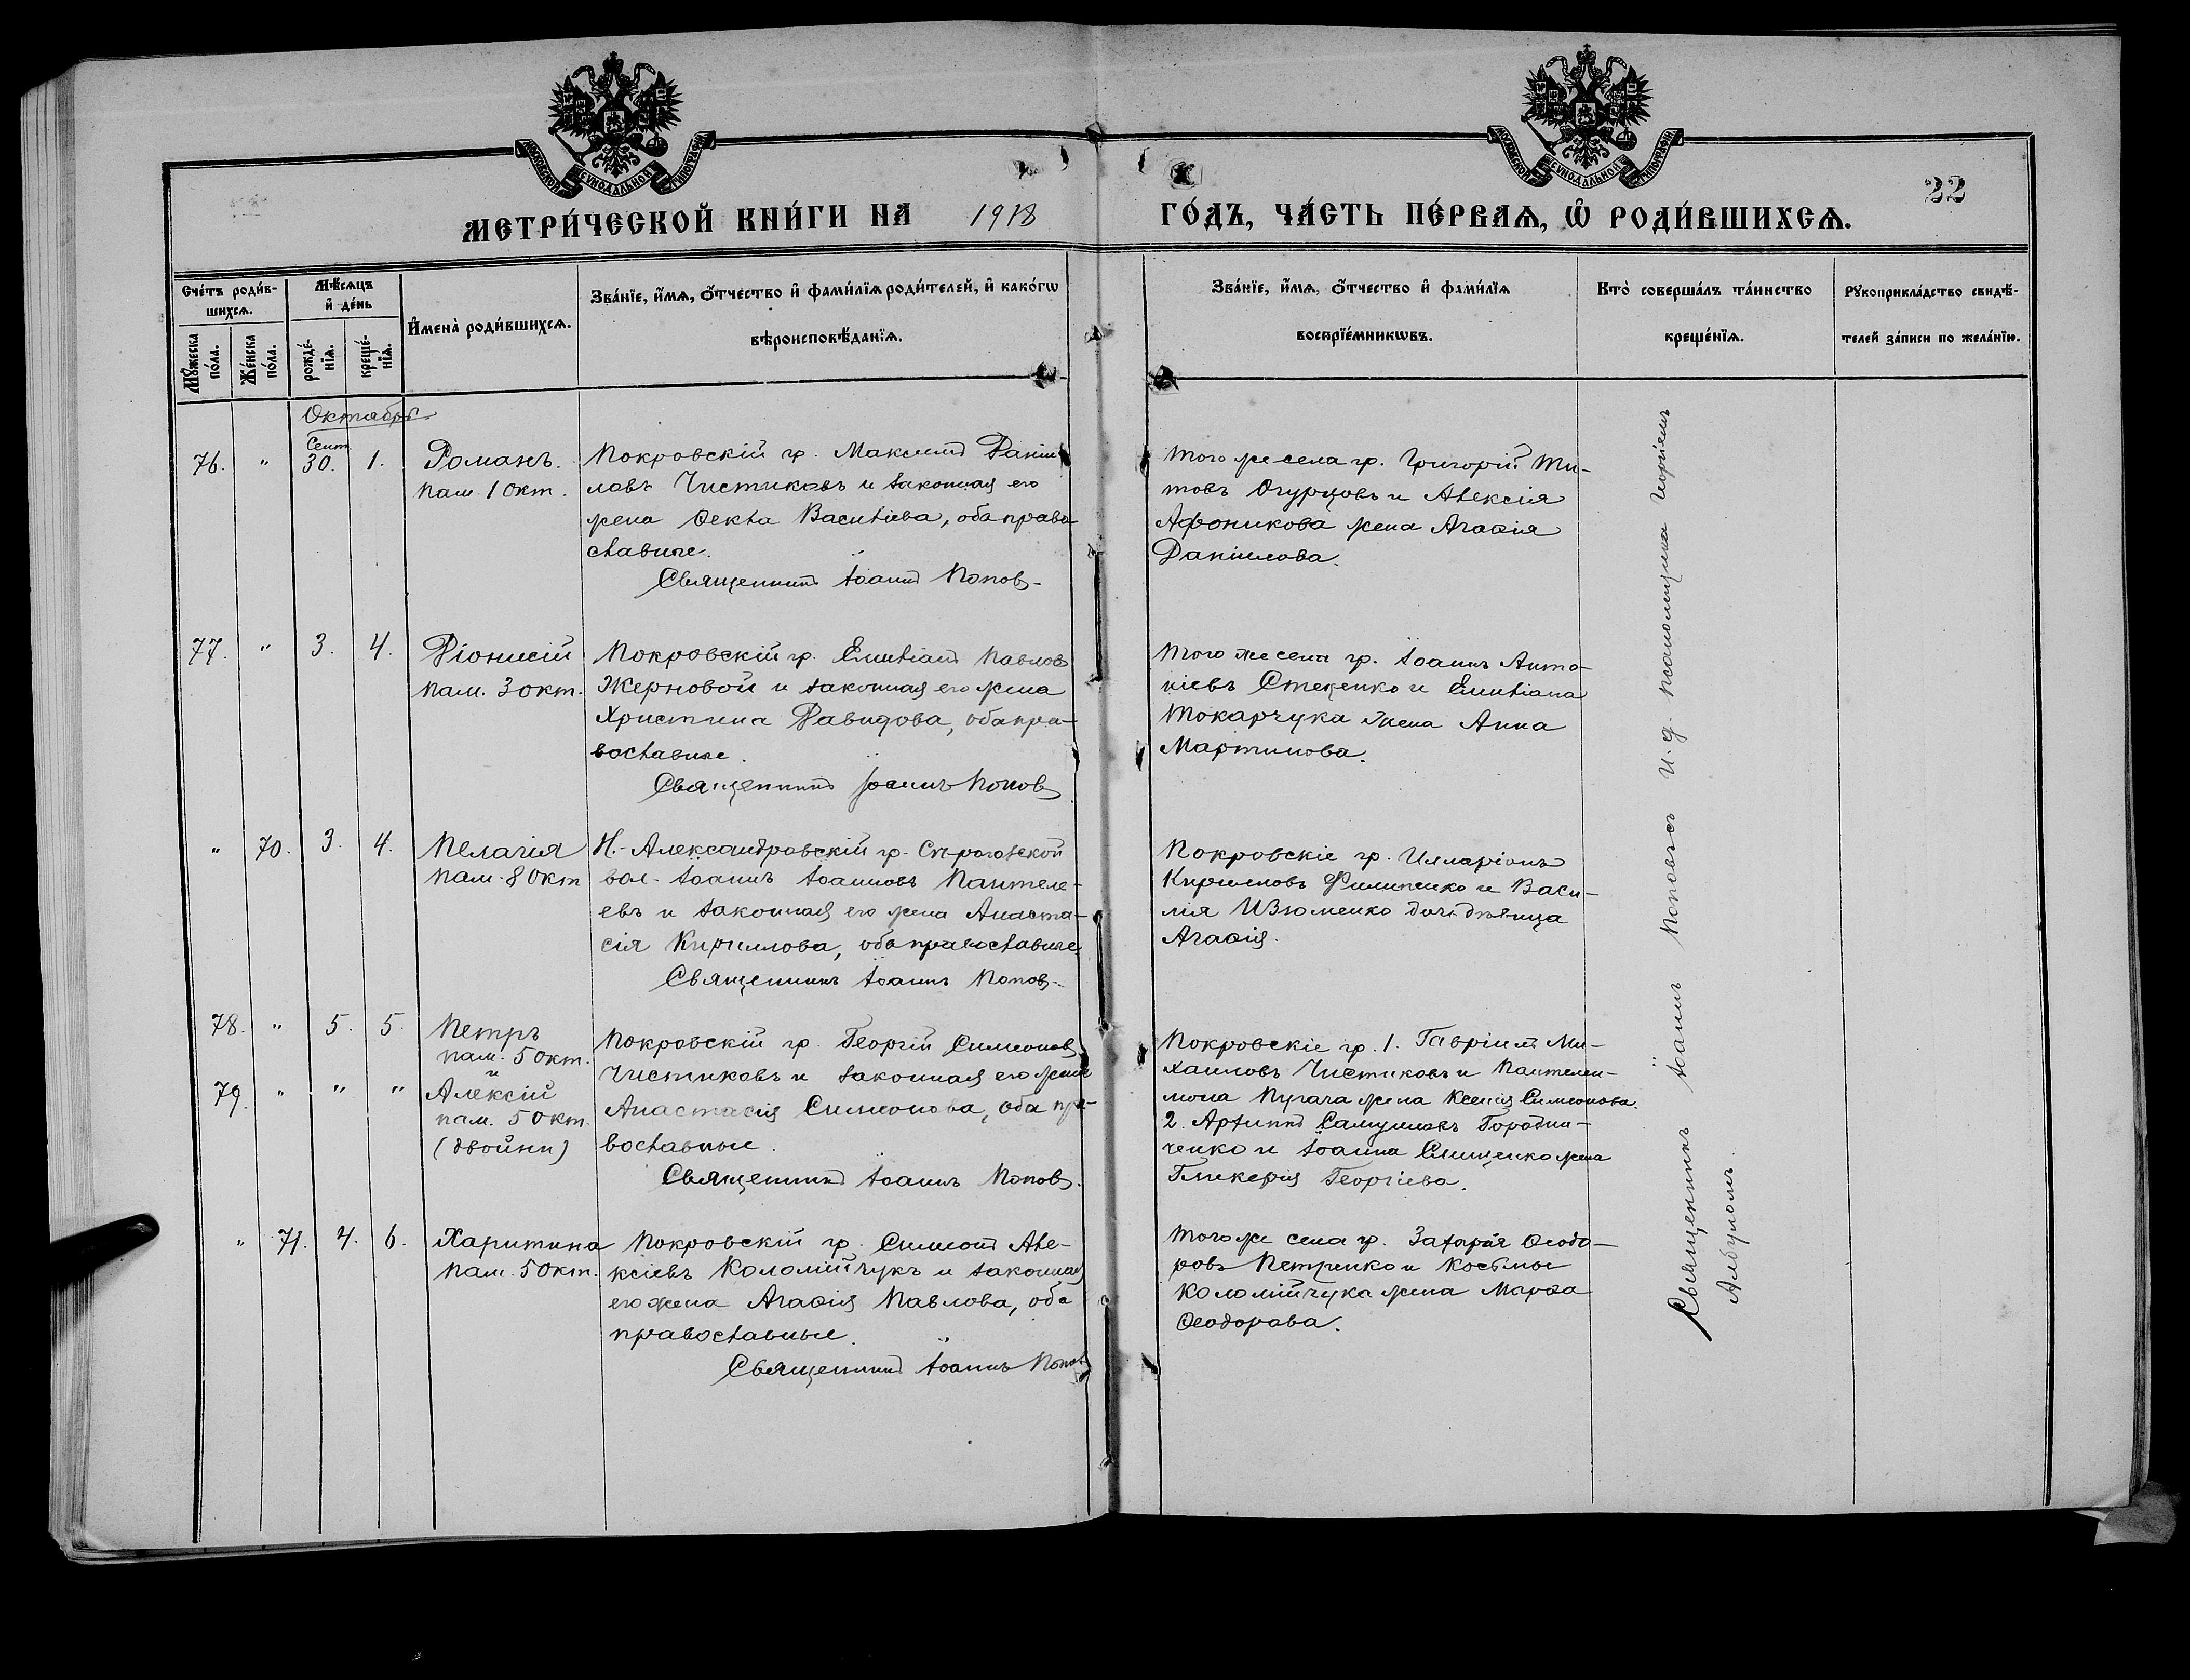 МОСКОВСКОЙ СѴНОДАЛЬНОЙ ТИПОГРАФІИ
МОСКОВСКОЙ СѴНОДАЛЬНОЙ ТИПОГРАФІИ
22
МЕТРИ́ЧЕСКОЙ КНИ́ГИ НА 1918 ГО́ДЪ, ЧА́СТЬ ПЕ́РВАѦ, Ѡ҆ РОДИ́ВШИХСѦ.
Сче́тъ роди́в-
шихсѧ.
Мꙋ́жеска по́ла.
Же́нска по́ла.
Мѣ́сѧцъ
и҆ де́нь
рожде́-
нїѧ.
креще́-
нїѧ.
И҆мена̀ роди́вшихсѧ.
Зва́нїе, и҆́мѧ, ѻ҆́тчество и҆ фами́лїѧ роди́телей, и҆ како́гѡ
вѣроисповѣ́данїѧ.
Зва́нїе, и҆́мѧ, ѻ҆́тчество и҆ фами́лїѧ
воспрїе́мникѡвъ.
Кто̀ соверша́лъ та́инство
креще́нїѧ.
Рꙋкоприкла́дство свидѣ́-
телей за́писи по жела́нїю.
Октябрь
Сент.
76. " 30. 1. Романъ.
пам. 1 Окт.
Покровскій гр. Максимъ Даніи
ловъ Чистиковъ и законная его
жена Ѳекла Василіева, оба право-
славные.
Священникъ Іоаннъ Поповъ
Того же села гр. Григорій Ти-
товъ Огурцовъ и Алексія
Афоникова жена Агаѳія
Даніилова.
77. " 3. 4. Діонисій
пам. 3 окт.
Покровскій гр. Емиліанъ Павловъ
Жерновой и законная его жена
Христина Давидова, оба пра-
вославные.
Священникъ Іоаннъ Поповъ
Того же села гр. Іоаннъ Анто-
ніевъ Стеценко и Емиліана
Токарчука жена Анна
Мартинова.
" 70. 3. 4. Пелагія
пам. 8 Окт
Н.-Александровскій гр. Сѣрогозской
вол. Іоаннъ Іоанновъ Пантеле-
евъ и законная его жена Анаста-
сія Кириллова, оба православные.
Священникъ Іоаннъ Поповъ.
Покровскіе гр. Илларіонъ
Кирилловъ Филипенко и Васи-
лія Изюменко дочь дѣвица
Агаѳія.
78. " 5. 5. Петръ
пам. 5 Окт.
и
79. " " " Алексій
пам. 5 Окт.
(двойни)
Покровскій гр. Георгій Симеоновъ
Чистиковъ и законная его жена
Анастасія Симеонова, оба пра-
вославные.
Священникъ Іоаннъ Поповъ.
Покровскіе гр. 1. Гавріилъ Ми-
хаиловъ Чистиковъ и Пантелеи-
мона Пугача жена Ксенія Симеонова.
2. Архиппъ Самуиловъ Городни-
ченко и Іоанна жена
Гликерія Георгіева.
" 71. 4. 6. Харитина
пам. 5 Окт.
Покровскій гр. Симеонъ Але-
ксіевъ Коломійчукъ и законная
его жена Агаѳія Павлова, оба
православные.
Священникъ Іоаннъ Поповъ
Того же села гр. Захарія Ѳеодо-
ровъ Петренко и Космы
Коломійчука жена Марѳа
Ѳеодорова.
Священникъ Іоаннъ Поповъ съ и. д. псаломщика Георгіемъ